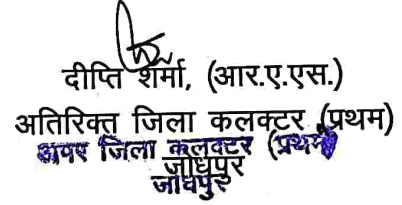 दीप्ति शर्मा, (आर.ए.एस.)
अतिरिक्त जिला कलक्टर (प्रथम)
अपर जिला कलक्टर (प्रथम)
जोधपुर
जोधपुर